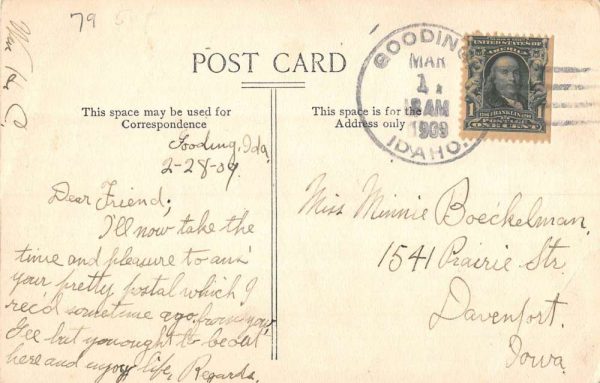 79
Wm H. C.
POST CARD
This space may be used for
Correspondence
This space is for the
Address only
GOODING
MAR
1
8 AM
1909
IDAHO.
UNITED STATES OF
AMERICA
1
FRANKLIN
ONE CENT
Gooding, Ida
2-28-09.
Dear Friend;
I'll now take the
time and pleasure to ans'
your pretty postal which I
rec'd sometime ago from you
Gee but you ought to be out
here and enjoy life, Regards.
Miss Minnie Boeckelman,
1541 Prairie Str.
Davenport.
Iowa.